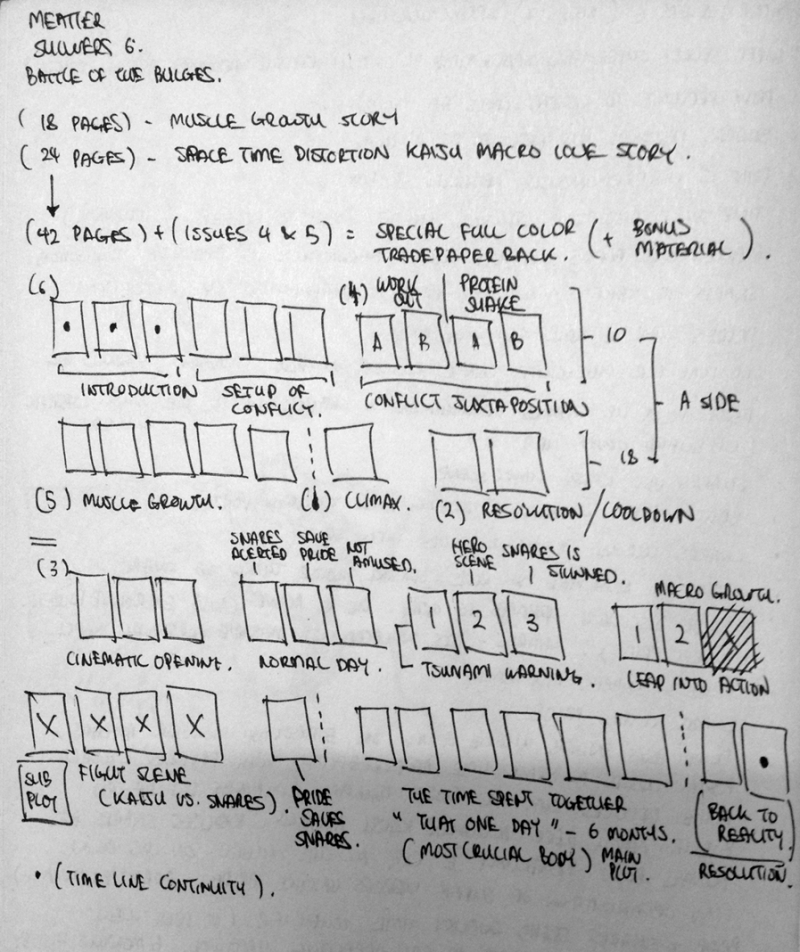 MEATIER
SHIVERS 6.
BATTLE OF THE BULGES.
(18 PAGES) - MUSCLE GROWTH STORY
(24 PAGES) - SPACE TIME DISTORTION KAIJU MACRO LOVE STORY.
(42 PAGES) + (ISSUES 4 & 5) = SPECIAL FULL COLOR TRADEPAPER BACK. (+ BONUS MATERIAL).
(6)
(4) WORK OUT PROTEIN SHAKE
A B A B
10
INTRODUCTION SETUP OF CONFLICT. CONFLICT JUXTAPOSITION
A SIDE
18
(5) MUSCLE GROWTH. (1) CLIMAX. (2) RESOLUTION/COOLDOWN
(3)
SNARES ALERTED SAVE PRIDE NOT AMUSED.
HERO SCENE SNARES IS STUNNED.
MACRO GROWTH.
1 2 3
1 2
CINEMATIC OPENING. NORMAL DAY. TSUNAMI WARNING. LEAP INTO ACTION
X X X X
SUB PLOT
FIGHT SCENE (KAIJU VS. SNARES).
PRIDE SAVES SNARES.
THE TIME SPENT TOGETHER
"THAT ONE DAY" - 6 MONTHS.
(MOST CRUCIAL BODY) MAIN PLOT.
(BACK TO REALITY)
RESOLUTION.
• (TIME LINE CONTINUITY).